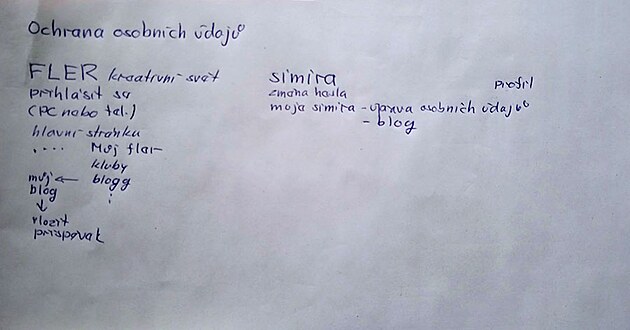 Ochrana osobních údajů
FLER kreativní svět
přihlásit se
(PC nebo tel.)
hlavní stránka
.... Můj fler
kluby
můj ← blogg
blog
↓
vložit
příspěvek
simira
profil
změna hesla
moje simira - úprava osobních údajů
- blog